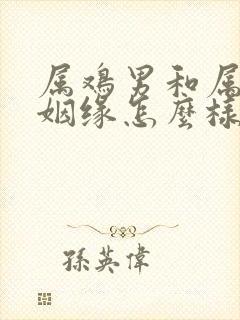 属鸡男和属
姻缘怎麼樣
孫英偉